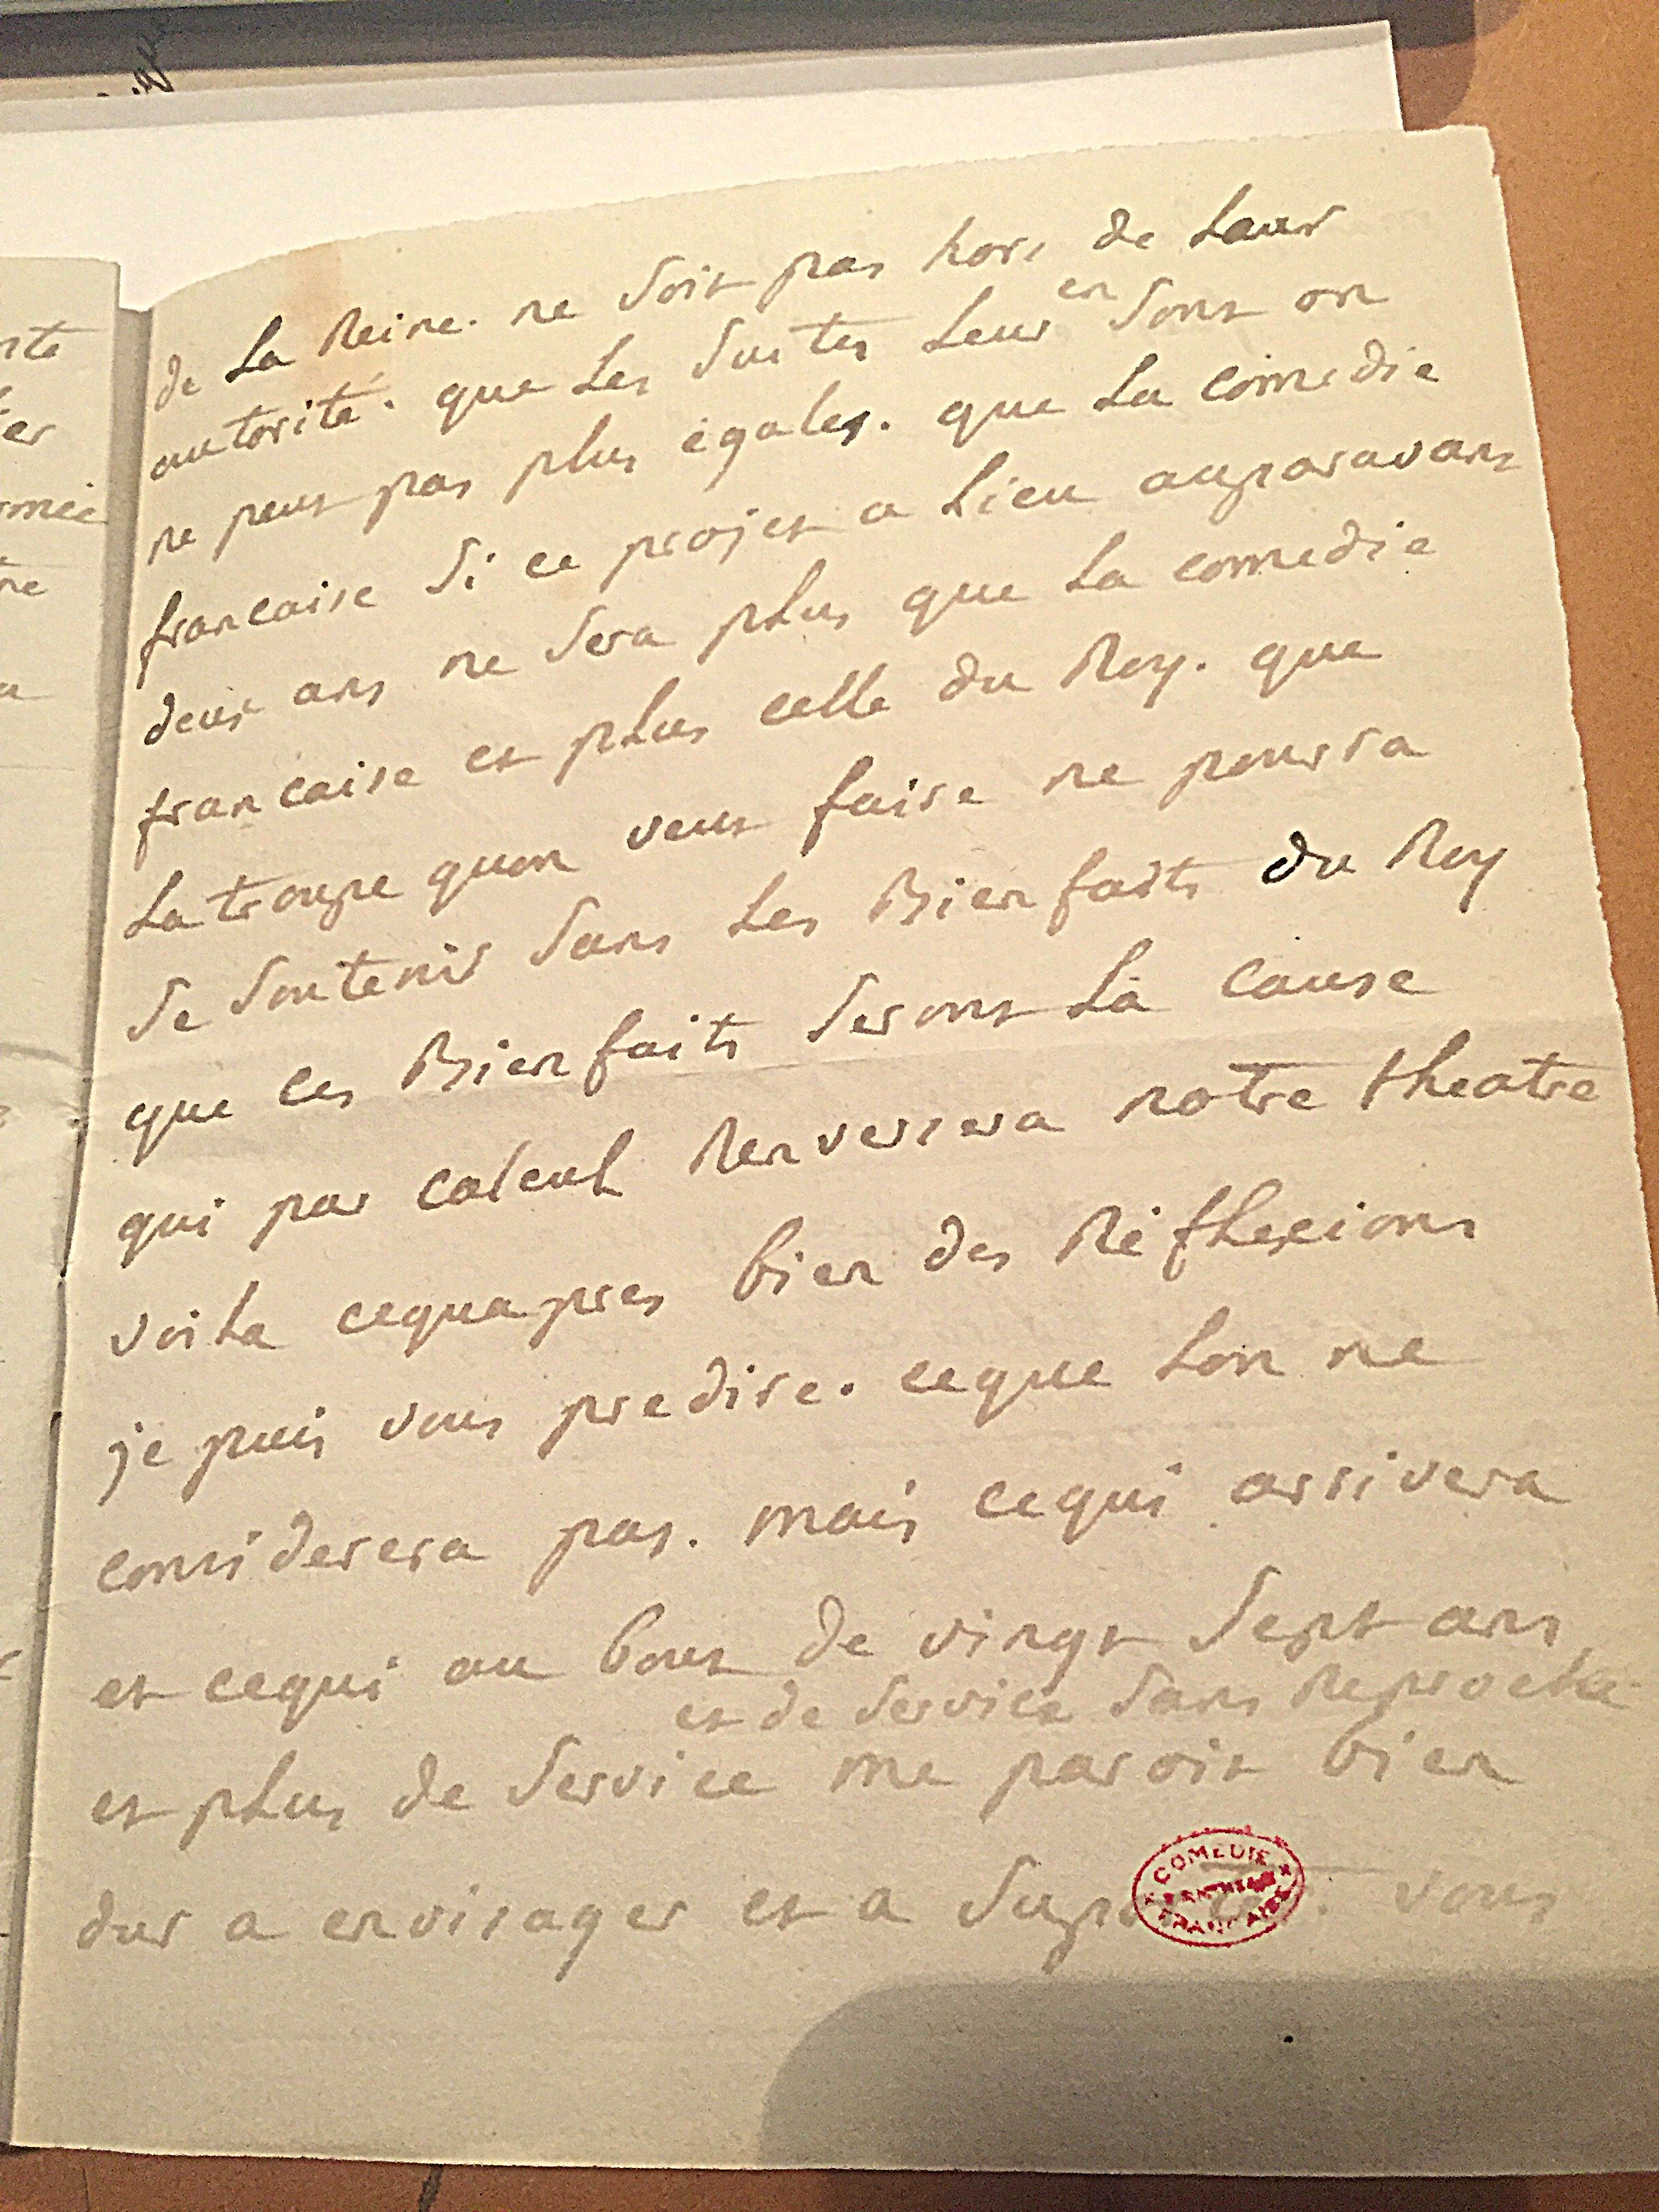 de La Reine. ne soit pas hors de Leur
autorité. que Les suites Leur en sont on
ne peut pas plus égales. que La comedie
francaise si ce projet a Lieu auparavant
deux ans ne sera plus que La comedie
francaise et plus celle du Roy. que
La troupe quon veut faire ne pourra
se soutenir sans Les Bienfaits du Roy
que ces Bienfaits seront La cause
qui par calcul Renversera notre theatre
voila cequapres bien des Réflexions
je puis vous predire. ceque Lon ne
considerera pas. mais cequi arrivera
et cequi au bout de vingt sept ans
et de service sans Reproche
et plus de service me paroit bien
dur a envisager et a vous
COMEDIE
FRANCAISE
nte
er
mée
ne